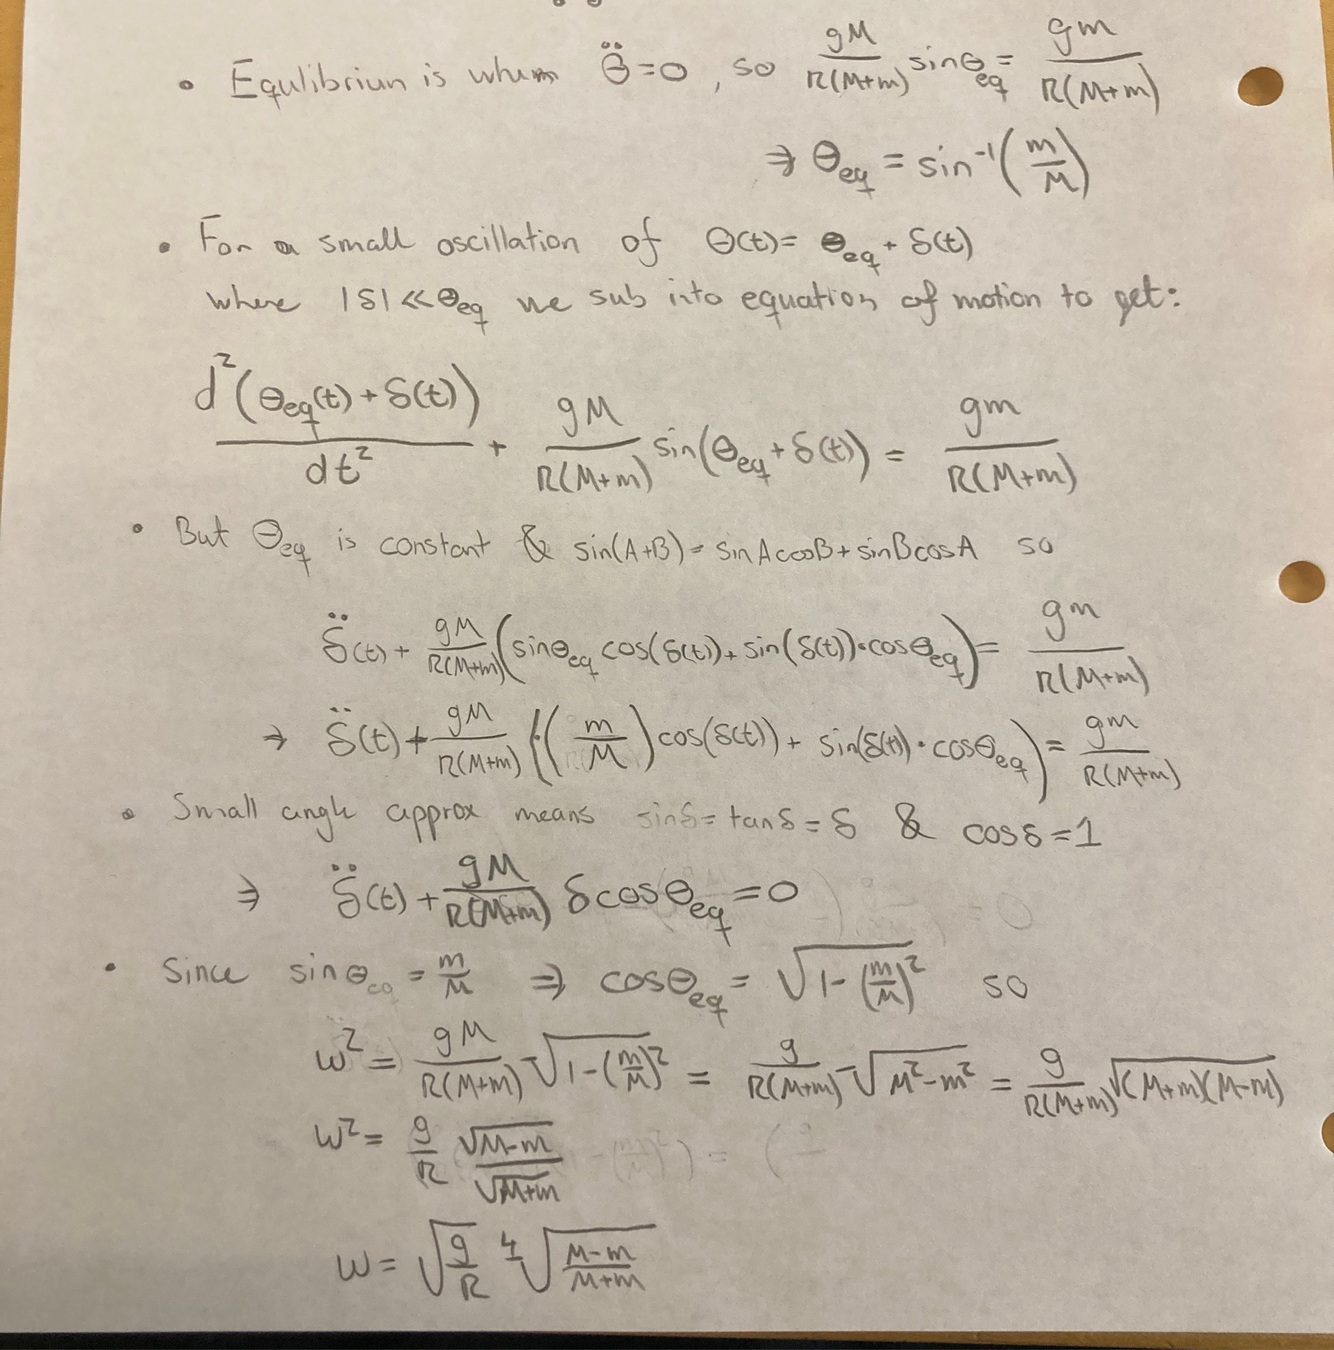 • Equlibriun is whum θ̈=0, so gM/R(M+m) sinθ_eq = gm/R(M+m)
⇒ θ_eq = sin⁻¹(m/M)
• For a small oscillation of θ(t)= θ_eq + δ(t)
where |δ|≪θ_eq we sub into equation of motion to get:
d²(θ_eq(t)+δ(t))/dt² + gM/R(M+m) sin(θ_eq+δ(t)) = gm/R(M+m)
• But θ_eq is constant & sin(A+B)=sinAcosB+sinBcosA so
δ̈(t) + gM/R(M+m) (sinθ_eq cos(δ(t))+sin(δ(t))·cosθ_eq) = gm/R(M+m)
⇒ δ̈(t) + gM/R(M+m) ((m/M)cos(δ(t)) + sin(δ(t))·cosθ_eq) = gm/R(M+m)
• Small angle approx means sinδ=tanδ=δ & cosδ=1
⇒ δ̈(t) + gM/R(M+m) δcosθ_eq = 0
• Since sinθ_eq = m/M ⇒ cosθ_eq = √(1-(m/M)²) so
ω² = gM/R(M+m) √(1-(m/M)²) = g/R(M+m) √(M²-m²) = g/R(M+m) √((M+m)(M-m))
ω² = g/R √(M-m)/√(M+m)
ω = √(g/R) ∜((M-m)/(M+m))